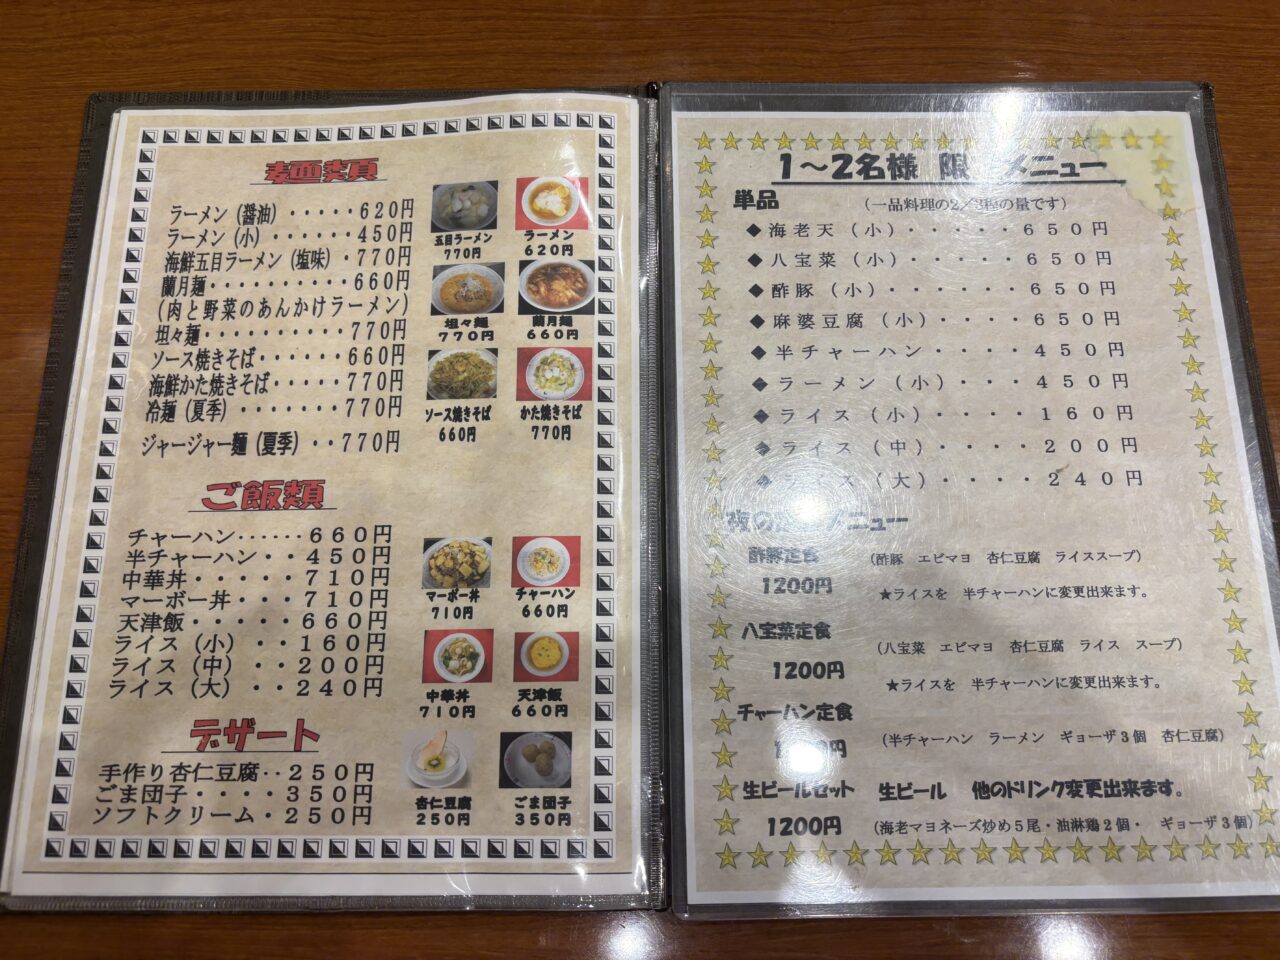 麺類
ラーメン（醤油）・・・・・620円
ラーメン（小）・・・・・・450円
海鮮五目ラーメン（塩味）・770円
蘭月麺・・・・・・・・・・660円
（肉と野菜のあんかけラーメン）
坦々麺・・・・・・・・・・770円
ソース焼きそば・・・・・・660円
海鮮かた焼きそば・・・・・770円
冷麺（夏季）・・・・・・・770円
ジャージャー麺（夏季）・・770円
五目ラーメン
770円
ラーメン
620円
坦々麺
770円
蘭月麺
660円
ソース焼きそば
660円
かた焼きそば
770円
ご飯類
チャーハン‥‥‥660円
半チャーハン・・450円
中華丼・・・・・710円
マーボー丼・・・710円
天津飯・・・・・660円
ライス（小）・・160円
ライス（中）・・200円
ライス（大）・・240円
マーボー丼
710円
チャーハン
660円
中華丼
710円
天津飯
660円
デザート
手作り杏仁豆腐‥250円
ごま団子・・・・350円
ソフトクリーム・250円
杏仁豆腐
250円
ごま団子
350円
1～2名様 限 メニュー
単品
（一品料理の2／3程の量です）
◆海老天（小）・・・・・650円
◆八宝菜（小）・・・・・650円
◆酢豚（小）・・・・・・650円
◆麻婆豆腐（小）・・・・650円
◆半チャーハン・・・・・450円
◆ラーメン（小）・・・・450円
◆ライス（小）・・・・・160円
◆ライス（中）・・・・・200円
◆ライス（大）・・・・・240円
夜の メニュー
酢豚定食 （酢豚 エビマヨ 杏仁豆腐 ライススープ）
1200円 ★ライスを 半チャーハンに変更出来ます。
八宝菜定食 （八宝菜 エビマヨ 杏仁豆腐 ライス スープ）
1200円 ★ライスを 半チャーハンに変更出来ます。
チャーハン定食 （半チャーハン ラーメン ギョーザ3個 杏仁豆腐）
生ビールセット 生ビール 他のドリンク変更出来ます。
1200円 （海老マヨネーズ炒め5尾・油淋鶏2個・ ギョーザ3個）